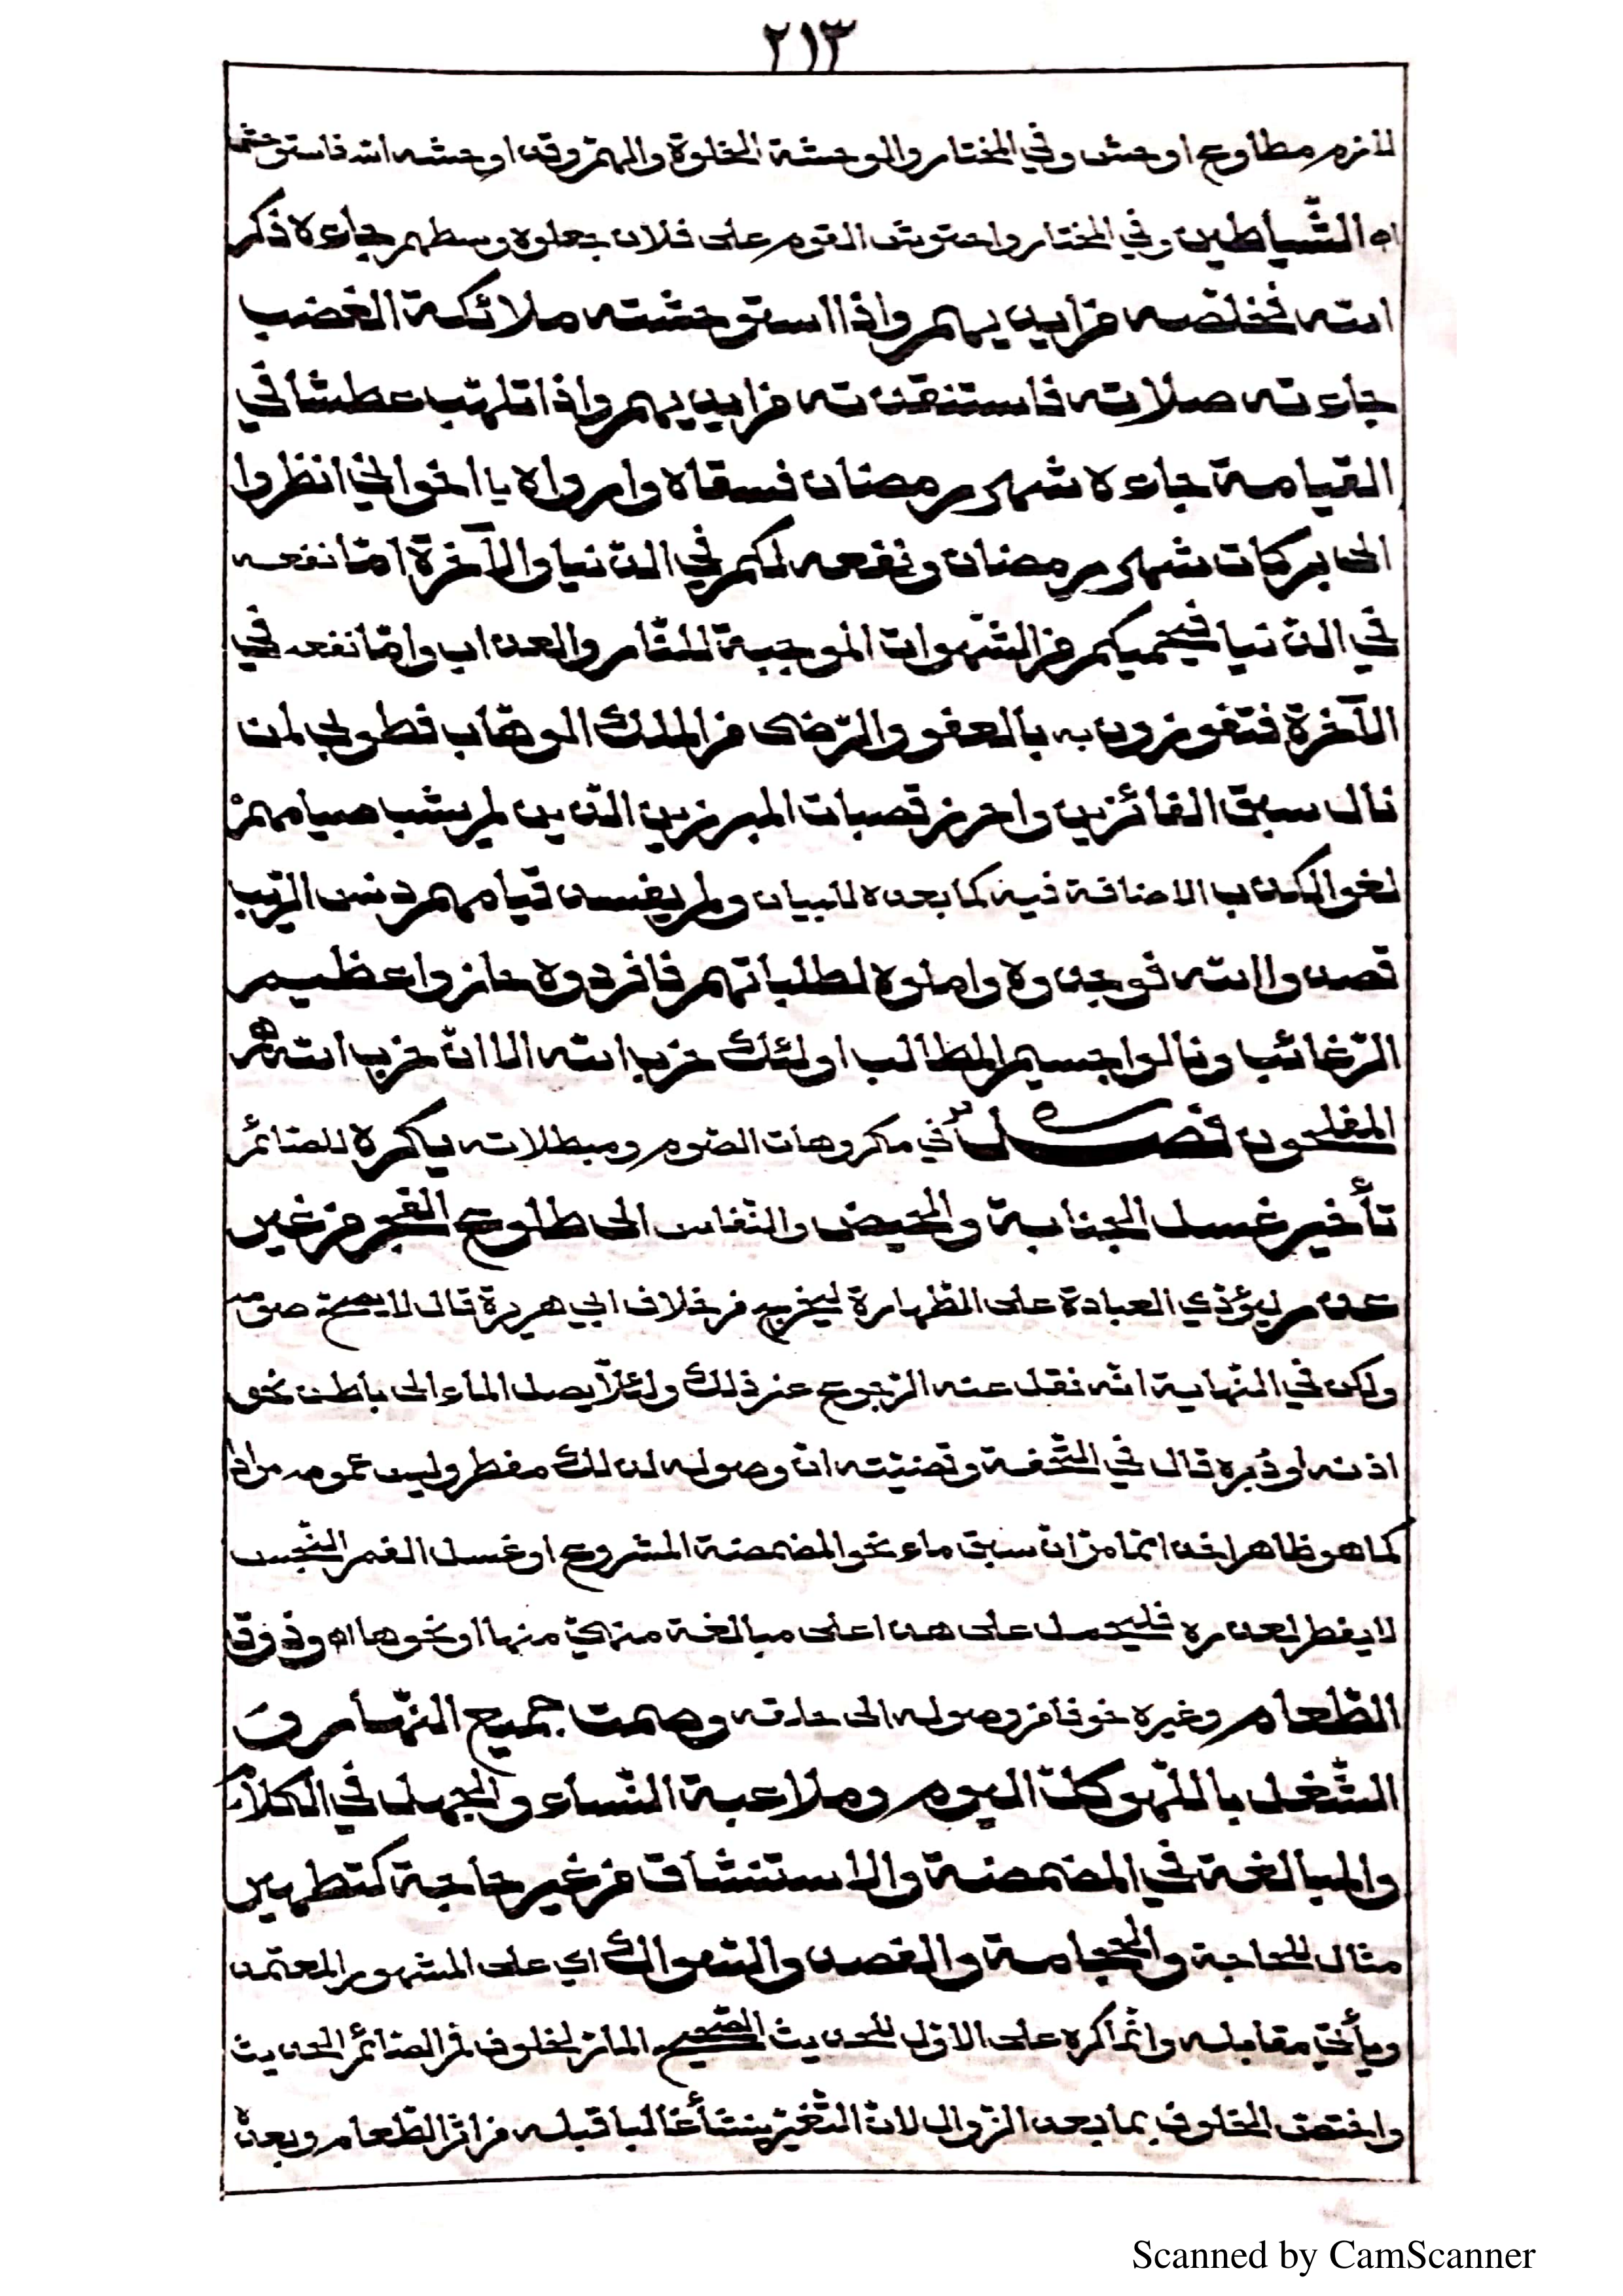 ٢١٣
لازم مطاوع اوحش وفي المختار والوحشة الخلوة والهم وقد اوحشه الله فاستوحش
اه الشّياطين وفي المختار واحتوش القوم على فلان جعلوه وسطهم جاءه ذكر
الله فخلّصه من ايديهم واذا استوحشته ملائكة الغضب
جاءته صلاته فاستنقذته من ايديهم واذا تلهّب عطشا في
القيامة جاءه شهر رمضان فسقاه وارواه يا اخواني انظروا
الى بركات شهر رمضان ونفعه لكم في الدّنيا والآخرة امّا نفعه
في الدّنيا فيحميكم من الشّهوات الموجبة للنّار والعذاب وامّا نفعه في
الآخرة فتفوزون به بالعفو والرّضى من الملك الوهّاب فطوبى لمن
نال سبق الفائزين واحرز قصبات المبرزين الّذين لم يشب صيامهمْ
لغو الكذب الاضافة فيه كما بعده للبيان ولم يفسد قيامهم دنس الرّيب
قصدوا الله فوجدوه واملوه لطلباتهم فافردوه حازوا عظيم
الرّغائب ونالوا جسيم المطالب اولئك حزب الله الا انّ حزب الله هم
المفلحون فصل في مكروهات الصّوم ومبطلاته يكره للصّائم
تأخير غسل الجنابة والحيض والنّفاس الى طلوع الفجر من غير
عذر ليؤدّي العبادة على الطّهارة ليخرج من خلاف ابي هريرة قال لا يصحّ صومه
ولكن في النّهاية انّه نقل عنه الرّجوع عن ذلك ولئلّا يصل الماء الى باطن نحو
اذنه او دُبره قال في التّحفة وقضيّته انّ وصوله لذلك مفطر وليس عمومه مرادا
كما هو ظاهر اخذا ممّا مرّ انّ سبق ماء نحو المضمضة المشروع او غسل الفم النّجس
لا يفطر لعذره فليحمل على هذا على مبالغة منهيّ منها او نحوها اه وذوق
الطّعام وغيره خوفا من وصوله الى حلقه وصمت جميع النّهار و
الشّغل باللّهو كلّ اليوم وملاعبة النّساء والجهل في الكلام
والمبالغة في المضمضة والاستنشاق من غير حاجة كتطهير
مثال للحاجة والحجامة والفصد والسّواك اي على المشهور المعتمد
ويأتي مقابله وانّما كره على الاوّل للحديث الصّحيح المارّ لخلوف فم الصّائم الحديث
واختصّ الخلوف بما بعد الزّوال لانّ التّغيّر ينشأ غالبا قبله من اثر الطّعام وبعده
Scanned by CamScanner